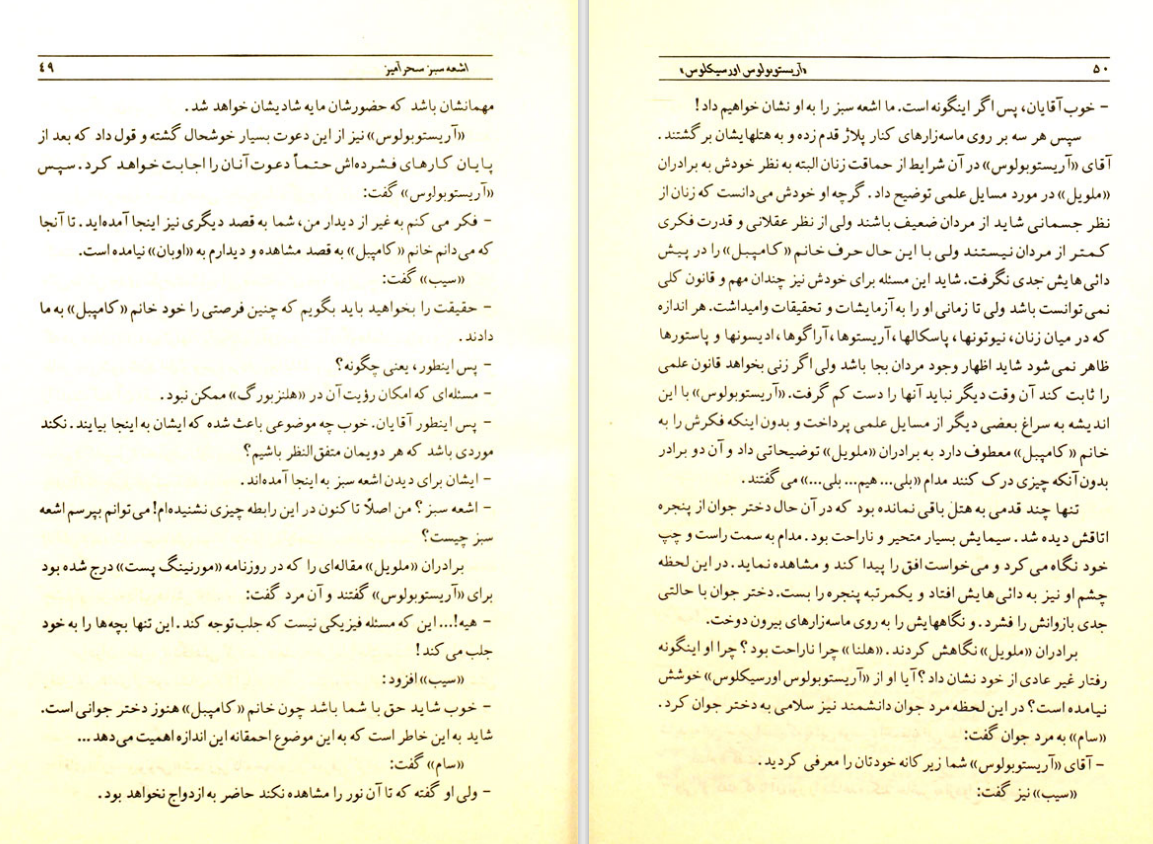 اشعه سبز سحرآمیز ٤٩
مهمانشان باشد که حضورشان مایه شادیشان خواهد شد.
«آریستوبولوس» نیز از این دعوت بسیار خوشحال گشته و قول داد که بعد از
پایان کارهای فشرده‌اش حتماً دعوت آنان را اجابت خواهد کرد. سپس
«آریستوبولوس» گفت:
- فکر می کنم به غیر از دیدار من، شما به قصد دیگری نیز اینجا آمده‌اید. تا آنجا
که می‌دانم خانم «کامپبل» به قصد مشاهده و دیدارم به «اوبان» نیامده است.
«سیب» گفت:
- حقیقت را بخواهید باید بگویم که چنین فرصتی را خود خانم «کامپبل» به ما
دادند.
- پس اینطور، یعنی چگونه؟
- مسئله‌ای که امکان رؤیت آن در «هلنزبورگ» ممکن نبود.
- پس اینطور آقایان. خوب چه موضوعی باعث شده که ایشان به اینجا بیایند. نکند
موردی باشد که هر دویمان متفق‌النظر باشیم؟
- ایشان برای دیدن اشعه سبز به اینجا آمده‌اند.
- اشعه سبز؟ من اصلاً تا کنون در این رابطه چیزی نشنیده‌ام! می‌توانم بپرسم اشعه
سبز چیست؟
برادران «ملویل» مقاله‌ای را که در روزنامه «مورنینگ پست» درج شده بود
برای «آریستوبولوس» گفتند و آن مرد گفت:
- هیه!... این که مسئله فیزیکی نیست که جلب توجه کند. این تنها بچه‌ها را به خود
جلب می کند!
«سیب» افزود:
- خوب شاید حق با شما باشد چون خانم «کامپبل» هنوز دختر جوانی است.
شاید به این خاطر است که به این موضوع احمقانه این اندازه اهمیت می‌دهد...
«سام» گفت:
- ولی او گفته که تا آن نور را مشاهده نکند حاضر به ازدواج نخواهد بود.
۵۰ «آریستوبولوس اورسیکلوس»
- خوب آقایان، پس اگر اینگونه است. ما اشعه سبز را به او نشان خواهیم داد!
سپس هر سه بر روی ماسه‌زارهای کنار پلاژ قدم زده و به هتلهایشان برگشتند.
آقای «آریستوبولوس» در آن شرایط از حماقت زنان البته به نظر خودش به برادران
«ملویل» در مورد مسایل علمی توضیح داد. گرچه او خودش می‌دانست که زنان از
نظر جسمانی شاید از مردان ضعیف باشند ولی از نظر عقلانی و قدرت فکری
کمتر از مردان نیستند ولی با این حال حرف خانم «کامپبل» را در پیش
دائی‌هایش جدی نگرفت. شاید این مسئله برای خودش نیز چندان مهم و قانون کلی
نمی‌توانست باشد ولی تا زمانی او را به آزمایشات و تحقیقات وامیداشت. هر اندازه
که در میان زنان، نیوتونها، پاسکالها، آریستوها، آراگوها، ادیسونها و پاستورها
ظاهر نمی‌شود شاید اظهار وجود مردان بجا باشد ولی اگر زنی بخواهد قانون علمی
را ثابت کند آن وقت دیگر نباید آنها را دست کم گرفت. «آریستوبولوس» با این
اندیشه به سراغ بعضی دیگر از مسایل علمی پرداخت و بدون اینکه فکرش را به
خانم «کامپبل» معطوف دارد به برادران «ملویل» توضیحاتی داد و آن دو برادر
بدون آنکه چیزی درک کنند مدام «بلی... هیم... بلی...» می گفتند.
تنها چند قدمی به هتل باقی نمانده بود که در آن حال دختر جوان از پنجره
اتاقش دیده شد. سیمایش بسیار متحیر و ناراحت بود. مدام به سمت راست و چپ
خود نگاه می کرد و می‌خواست افق را پیدا کند و مشاهده نماید. در این لحظه
چشم او نیز به دائی‌هایش افتاد و یکمرتبه پنجره را بست. دختر جوان با حالتی
جدی بازوانش را فشرد. و نگاههایش را به روی ماسه‌زارهای بیرون دوخت.
برادران «ملویل» نگاهش کردند. «هلنا» چرا ناراحت بود؟ چرا او اینگونه
رفتار غیر عادی از خود نشان داد؟ آیا او از «آریستوبولوس اورسیکلوس» خوشش
نیامده است؟ در این لحظه مرد جوان دانشمند نیز سلامی به دختر جوان کرد.
«سام» به مرد جوان گفت:
- آقای «آریستوبولوس» شما زیرکانه خودتان را معرفی کردید.
«سیب» نیز گفت: